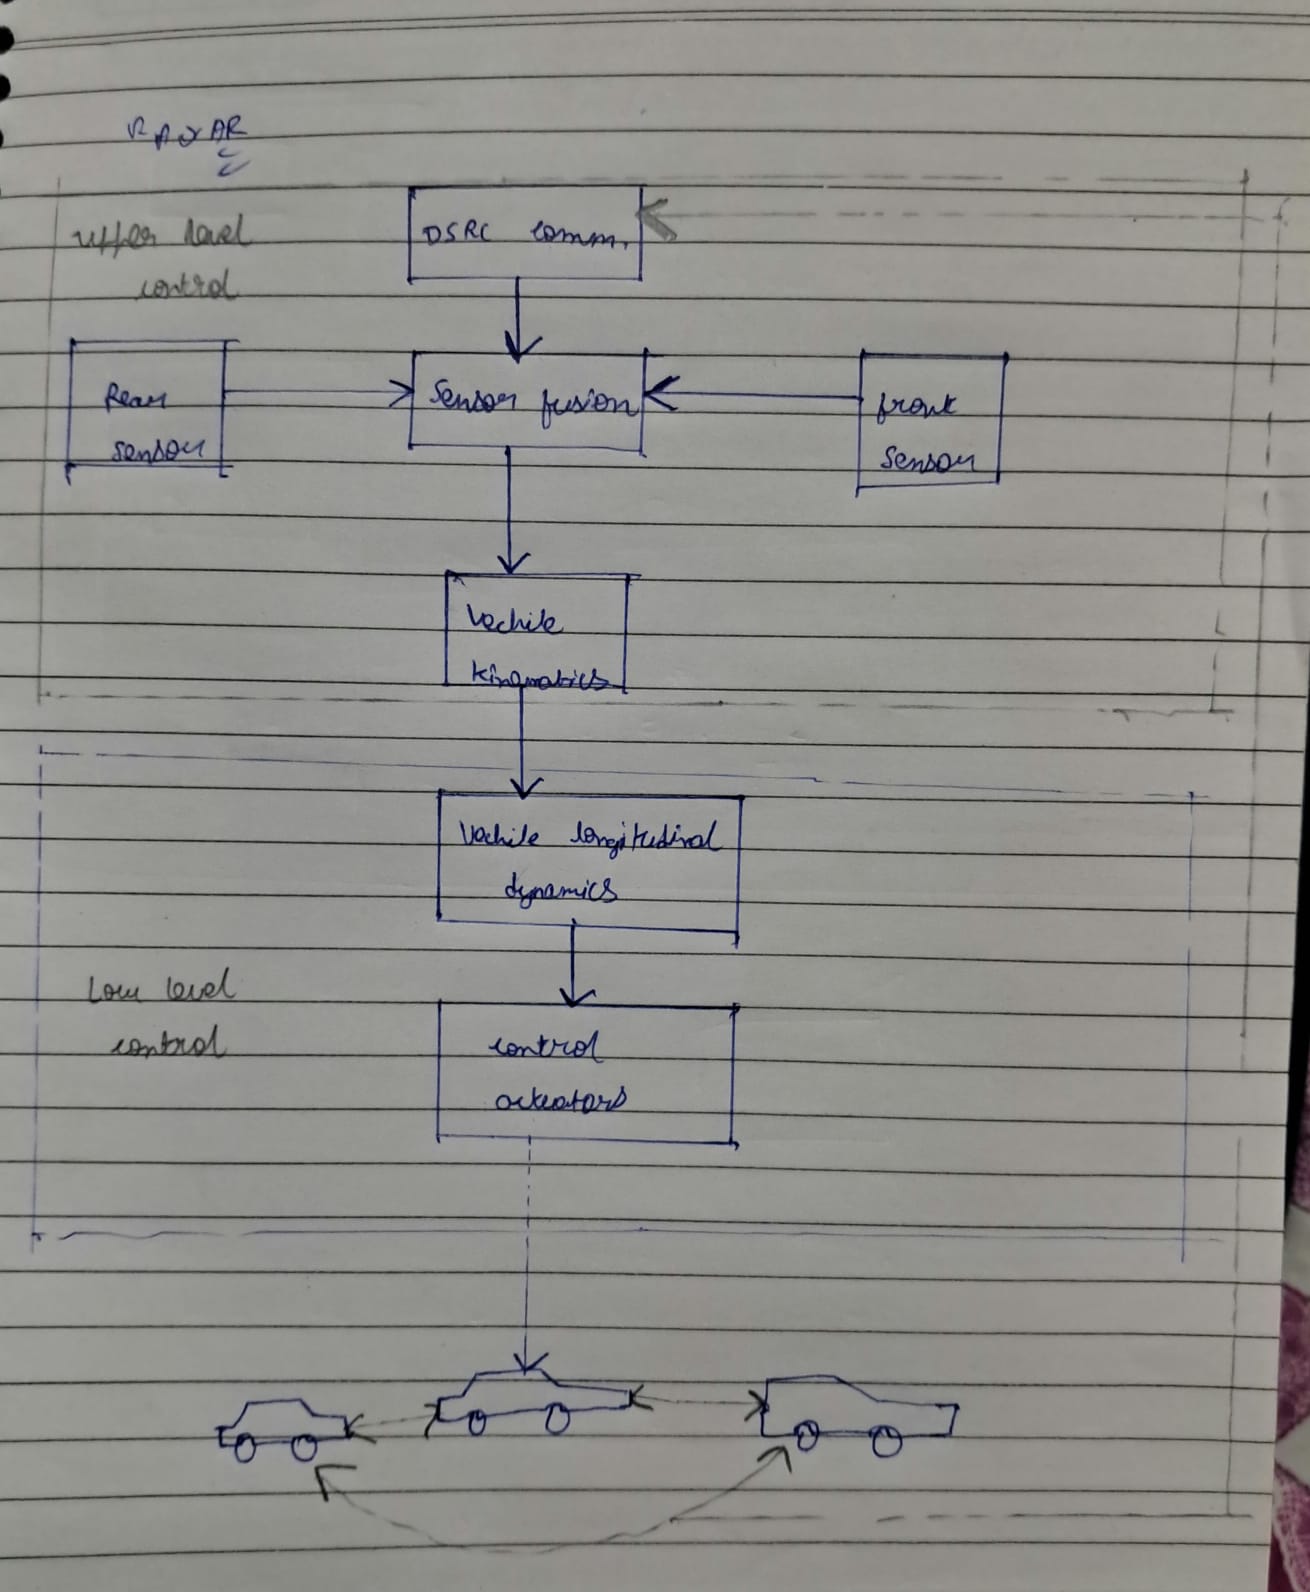 RADAR
upper level
control
DSRC comm.
Rear
sensor
Sensor fusion
front
sensor
Vechile
kinematics
Vechile longitudinal
dynamics
Low level
control
control
actuators